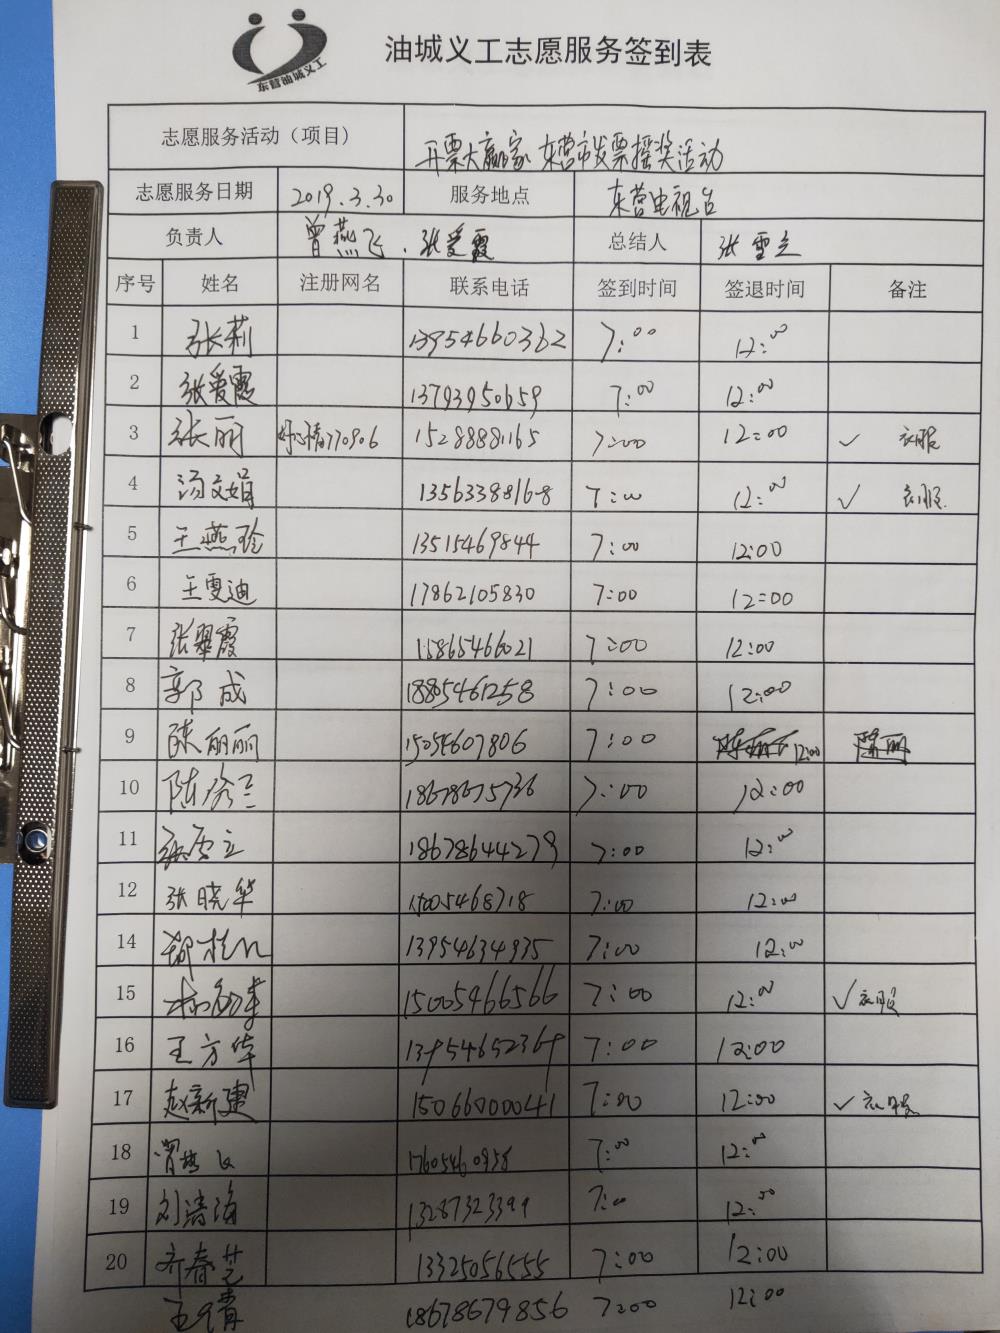 东营油城义工
油城义工志愿服务签到表
志愿服务活动（项目） 开票大赢家 东营市发票摇奖活动
志愿服务日期 2019.3.30 服务地点 东营电视台
负责人 曾燕飞.张爱霞 总结人 张雪立
序号 姓名 注册网名 联系电话 签到时间 签退时间 备注
1 张莉 13954660362 7:00 12:00
2 张爱霞 13793950659 7:00 12:00
3 张丽 好心情770906 15288881165 7:00 12:00 ✓ 衣服
4 汤文娟 13563388168 7:00 12:00 ✓ 衣服
5 王燕玲 13515469844 7:00 12:00
6 王雪迪 17862105830 7:00 12:00
7 张翠霞 15865466021 7:00 12:00
8 郭成 1885461258 7:00 12:00
9 陈丽丽 15054607806 7:00 12:00
10 陈 18678675736 7:00 12:00
11 张雪立 18678644279 7:00 12:00
12 张晓华 15005468718 7:00 12:00
14 13954634935 7:00 12:00
15 15005466566 7:00 12:00 ✓ 衣服
16 王方华 13954652369 7:00 12:00
17 赵新建 15066000041 7:00 12:00 ✓ 衣服
18 曾燕飞 17605460958 7:00 12:00
19 刘涛海 13287323399 7:00 12:00
20 齐春芝 13325056555 7:00 12:00
18678679856 7:00 12:00